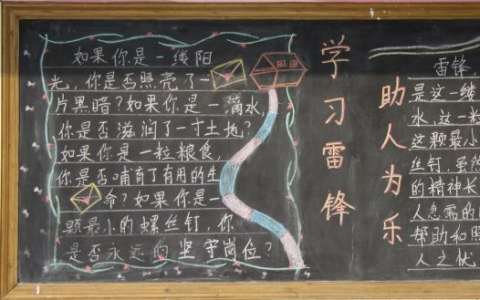 如果你是一缕阳
光，你是否照亮了一
片黑暗？如果你是一滴水，
你是否滋润了一寸土地？
如果你是一粒粮食，
你是否哺育了有用的生
命？如果你是一
颗最小的螺丝钉，你
是否永远的坚守岗位？
学习雷锋
助人为乐
雷锋，
是这一缕
水，这一粒
这颗最小
丝钉，虽然
的精神长
人急需的
帮助和照
人之忧，